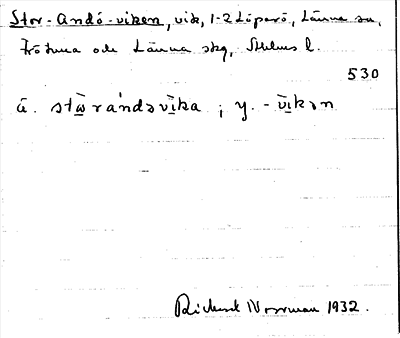 Stor-Andö-viken, vik, 1-2 Löparö, Länna sn,
Frötuna och Länna skg, Sthlms l.
530
ä. stω̄rándəvīka ; y. -vīkən
Rickard Norrman 1932.